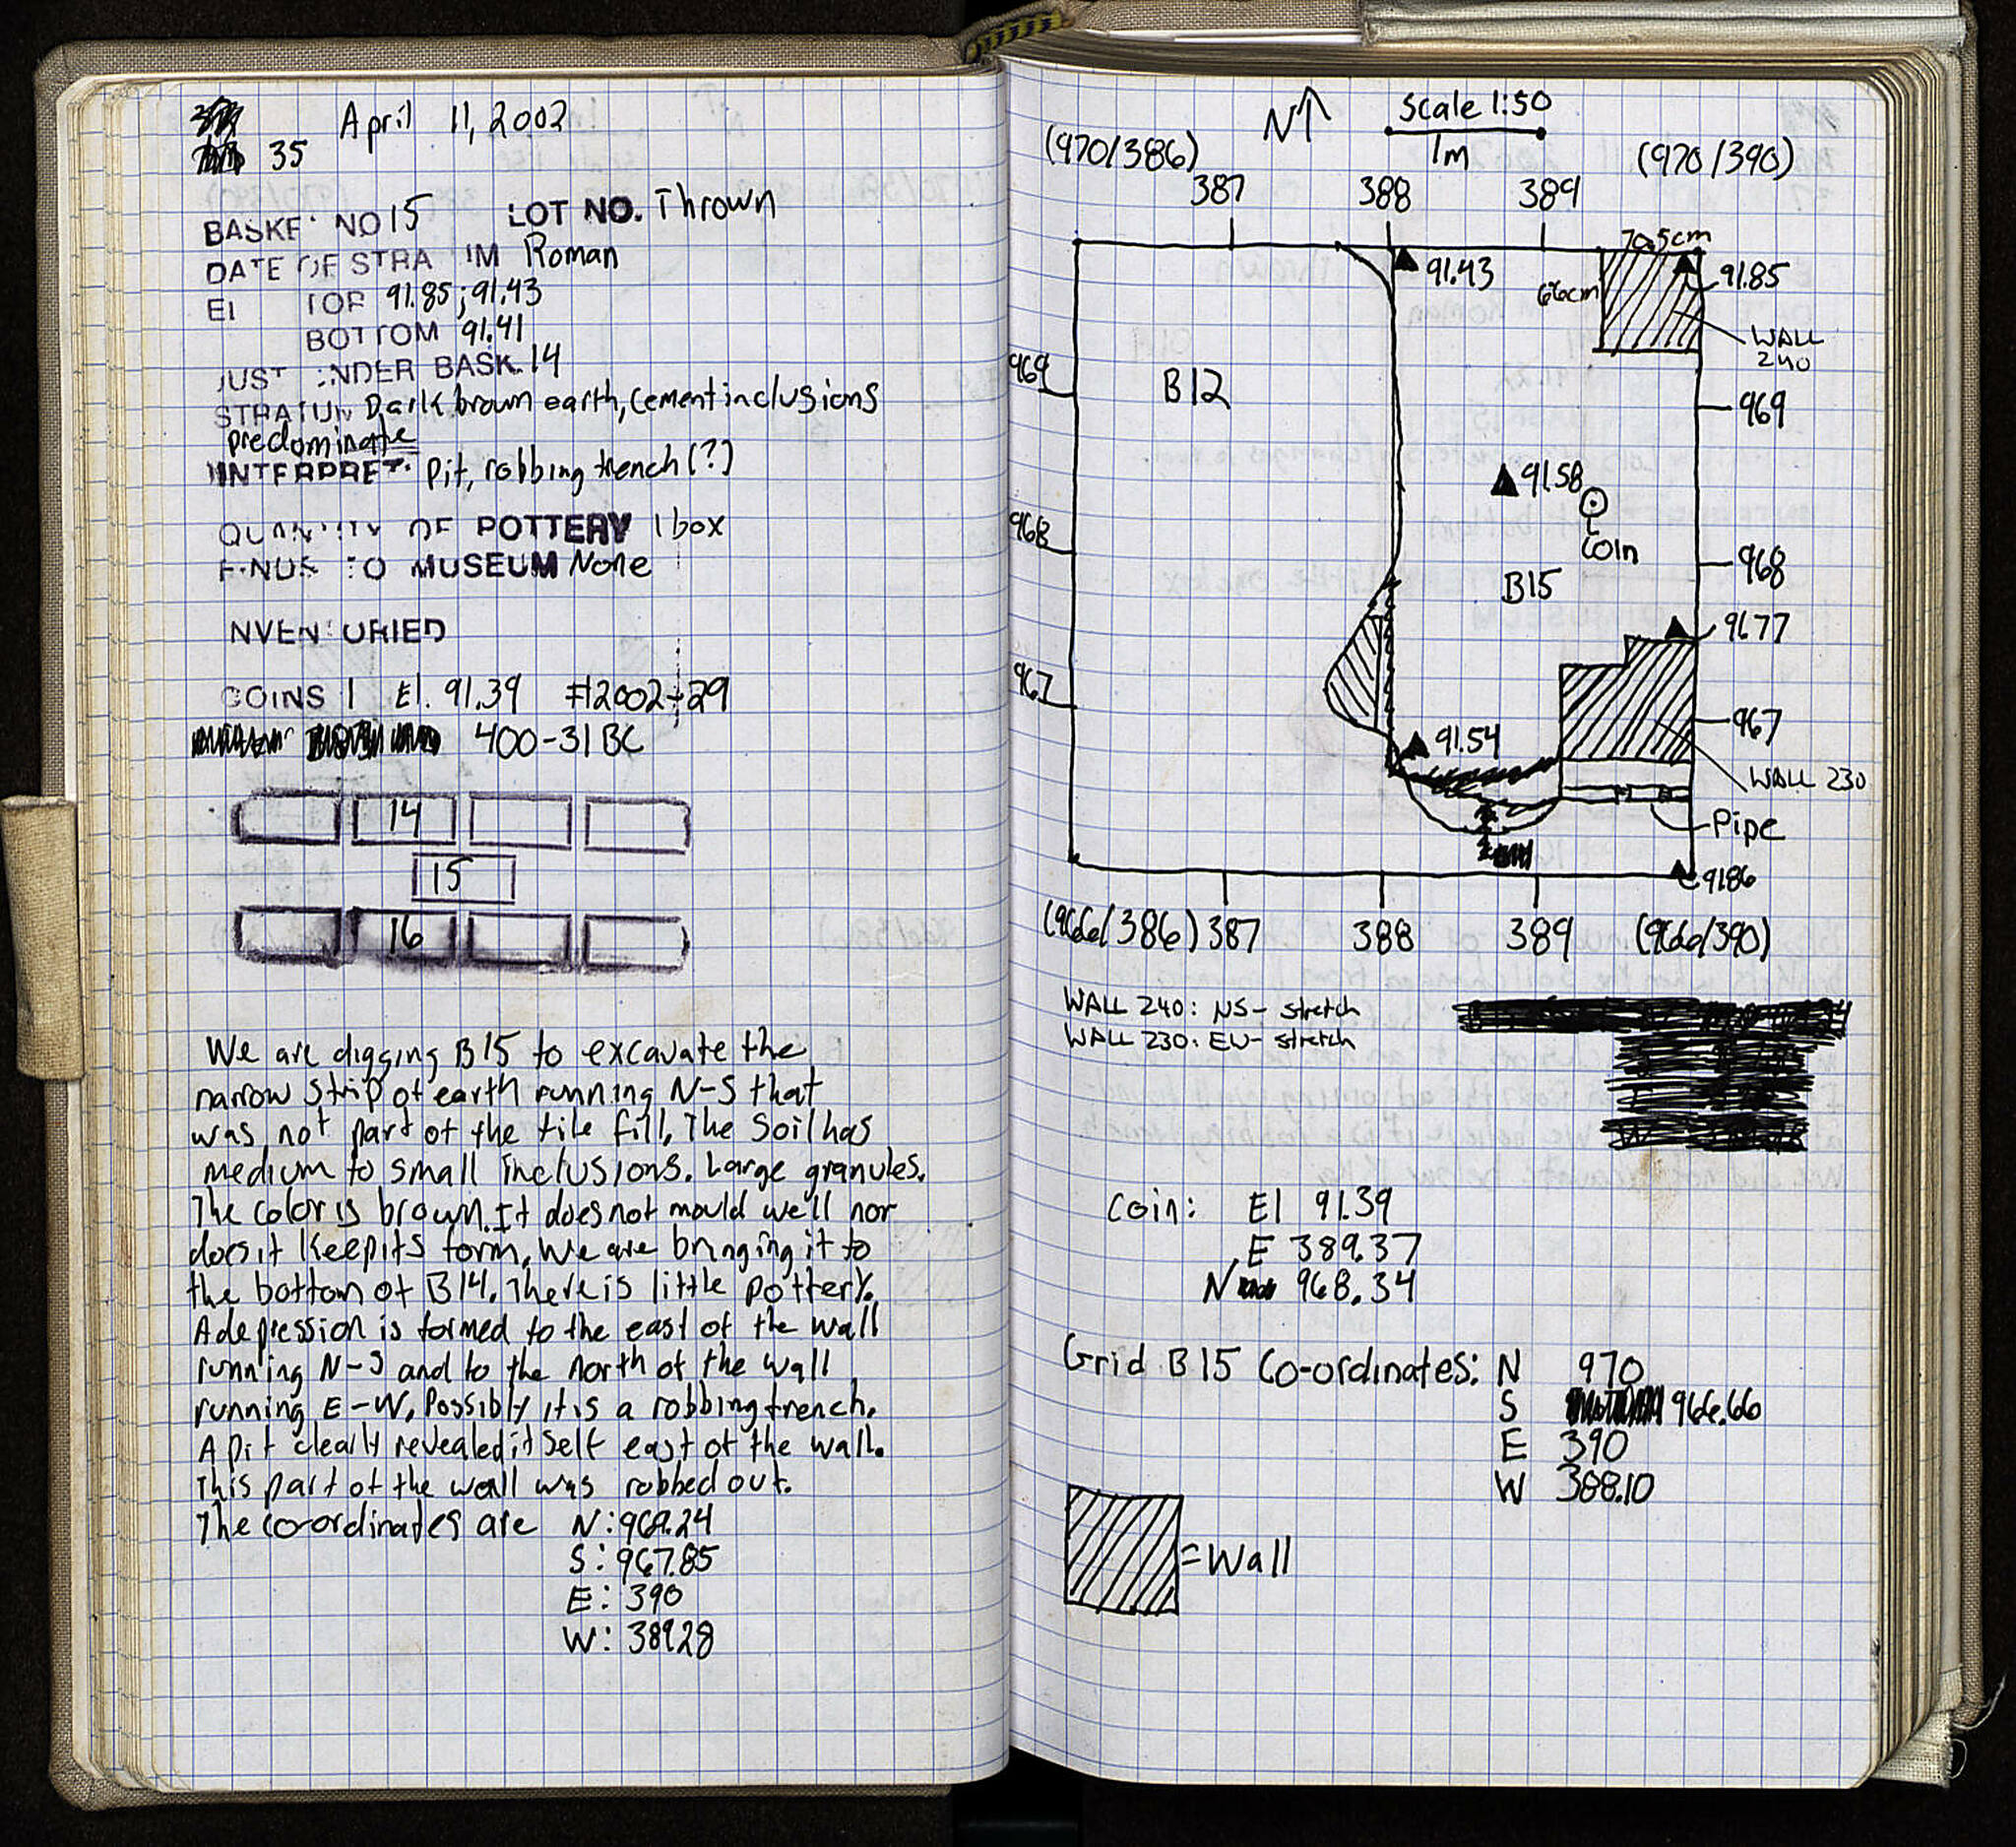 April 11, 2002
35
BASKE NO 15 LOT NO. Thrown
DATE OF STRA IM Roman
El TOP 91.85; 91.43
BOTTOM 91.41
JUST UNDER BASK. 14
STRATUM Dark brown earth, cement inclusions
predominate
INTERPRET. Pit, robbing trench (?)
QUANTITY OF POTTERY 1 box
FINDS TO MUSEUM None
NVENTORIED
COINS 1 El. 91.39 #2002-29
400-31 BC
14
15
16
We are digging B15 to excavate the
narrow strip of earth running N-S that
was not part of the tile fill, The soil has
medium to small inclusions. Large granules.
The color is brown. It does not mould well nor
does it keep its form, We are bringing it to
the bottom of B14. There is little pottery.
A depression is formed to the east of the wall
running N-S and to the north of the wall
running E-W, Possibly it is a robbing trench.
A pit clearly revealed itself east of the wall.
This part of the wall was robbed out.
The co-ordinates are N: 969.24
S: 967.85
E: 390
W: 389.28
N↑ Scale 1:50
1m
(970/386) (970/390)
387 388 389
70.5cm
91.43 66cm 91.85
WALL
240
969 B12 969
91.58
Coin
968 968
B15
91.77
967 967
91.54
WALL 230
Pipe
91.86
(966/386) 387 388 389 (966/390)
WALL 240: NS- stretch
WALL 230: EW- stretch
Coin: El 91.39
E 389.37
N 968.34
Grid B15 Co-ordinates: N 970
S 966.66
E 390
W 388.10
= Wall